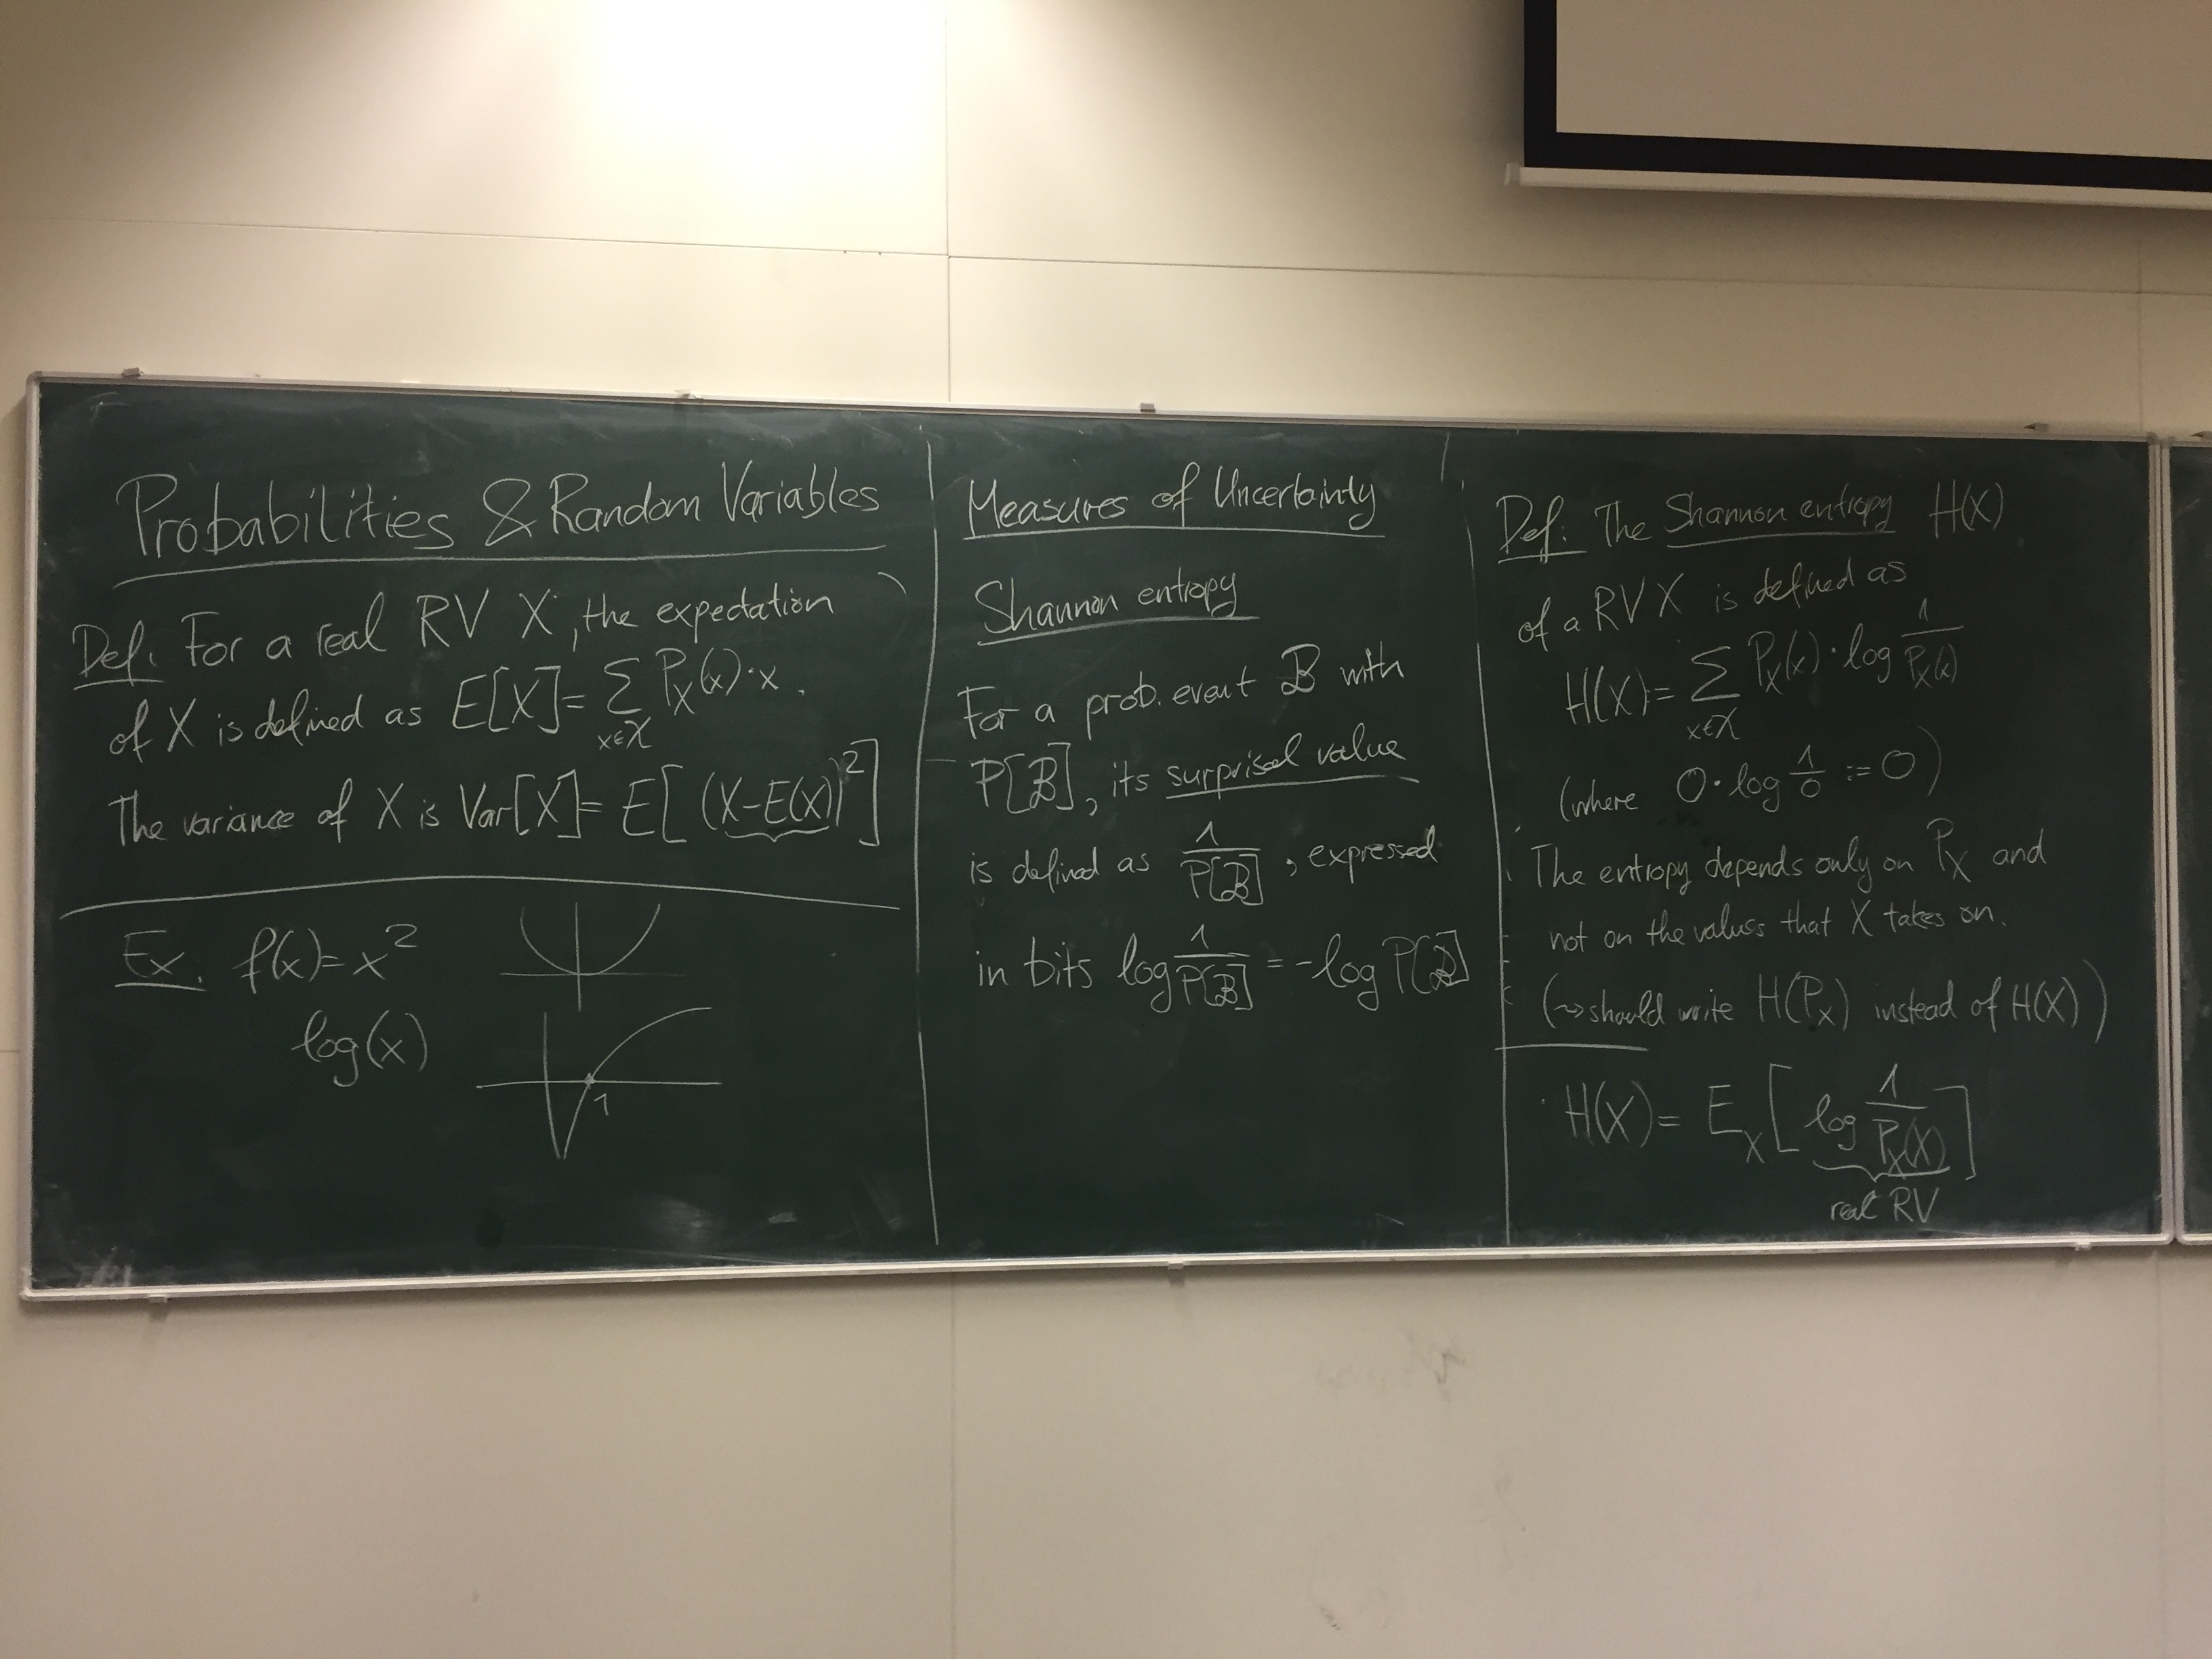 Probabilities & Random Variables
Def: For a real RV X, the expectation
of X is defined as E[X] = ∑_{x∈𝒳} P_X(x)·x.
The variance of X is Var[X] = E[(X-E(X))²]
Ex. f(x) = x²
log(x)
1
Measures of Uncertainty
Shannon entropy
For a prob. event ℬ with
P[ℬ], its surprisal value
is defined as 1/P[ℬ], expressed
in bits log 1/P[ℬ] = -log P[ℬ]
Def: The Shannon entropy H(X)
of a RV X is defined as
H(X) = ∑_{x∈𝒳} P_X(x)·log 1/P_X(x)
(where 0·log 1/0 := 0)
The entropy depends only on P_X and
not on the values that X takes on.
(⇝ should write H(P_X) instead of H(X))
H(X) = E_X[log 1/P_X(X)]
real RV